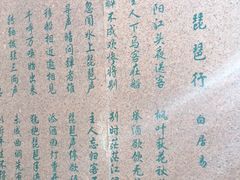 琵琶行 白居易
阳江头夜送客 枫叶荻花秋
主人下马客在船 举酒欲饮无
醉不成欢惨将别 别时茫茫江
忽闻水上琵琶声 主人忘归客
寻声暗问弹者谁 琵琶声停欲
移船相近邀相见
千呼万唤始出来 犹抱琵琶
转轴拨弦三两声 未成曲调先有